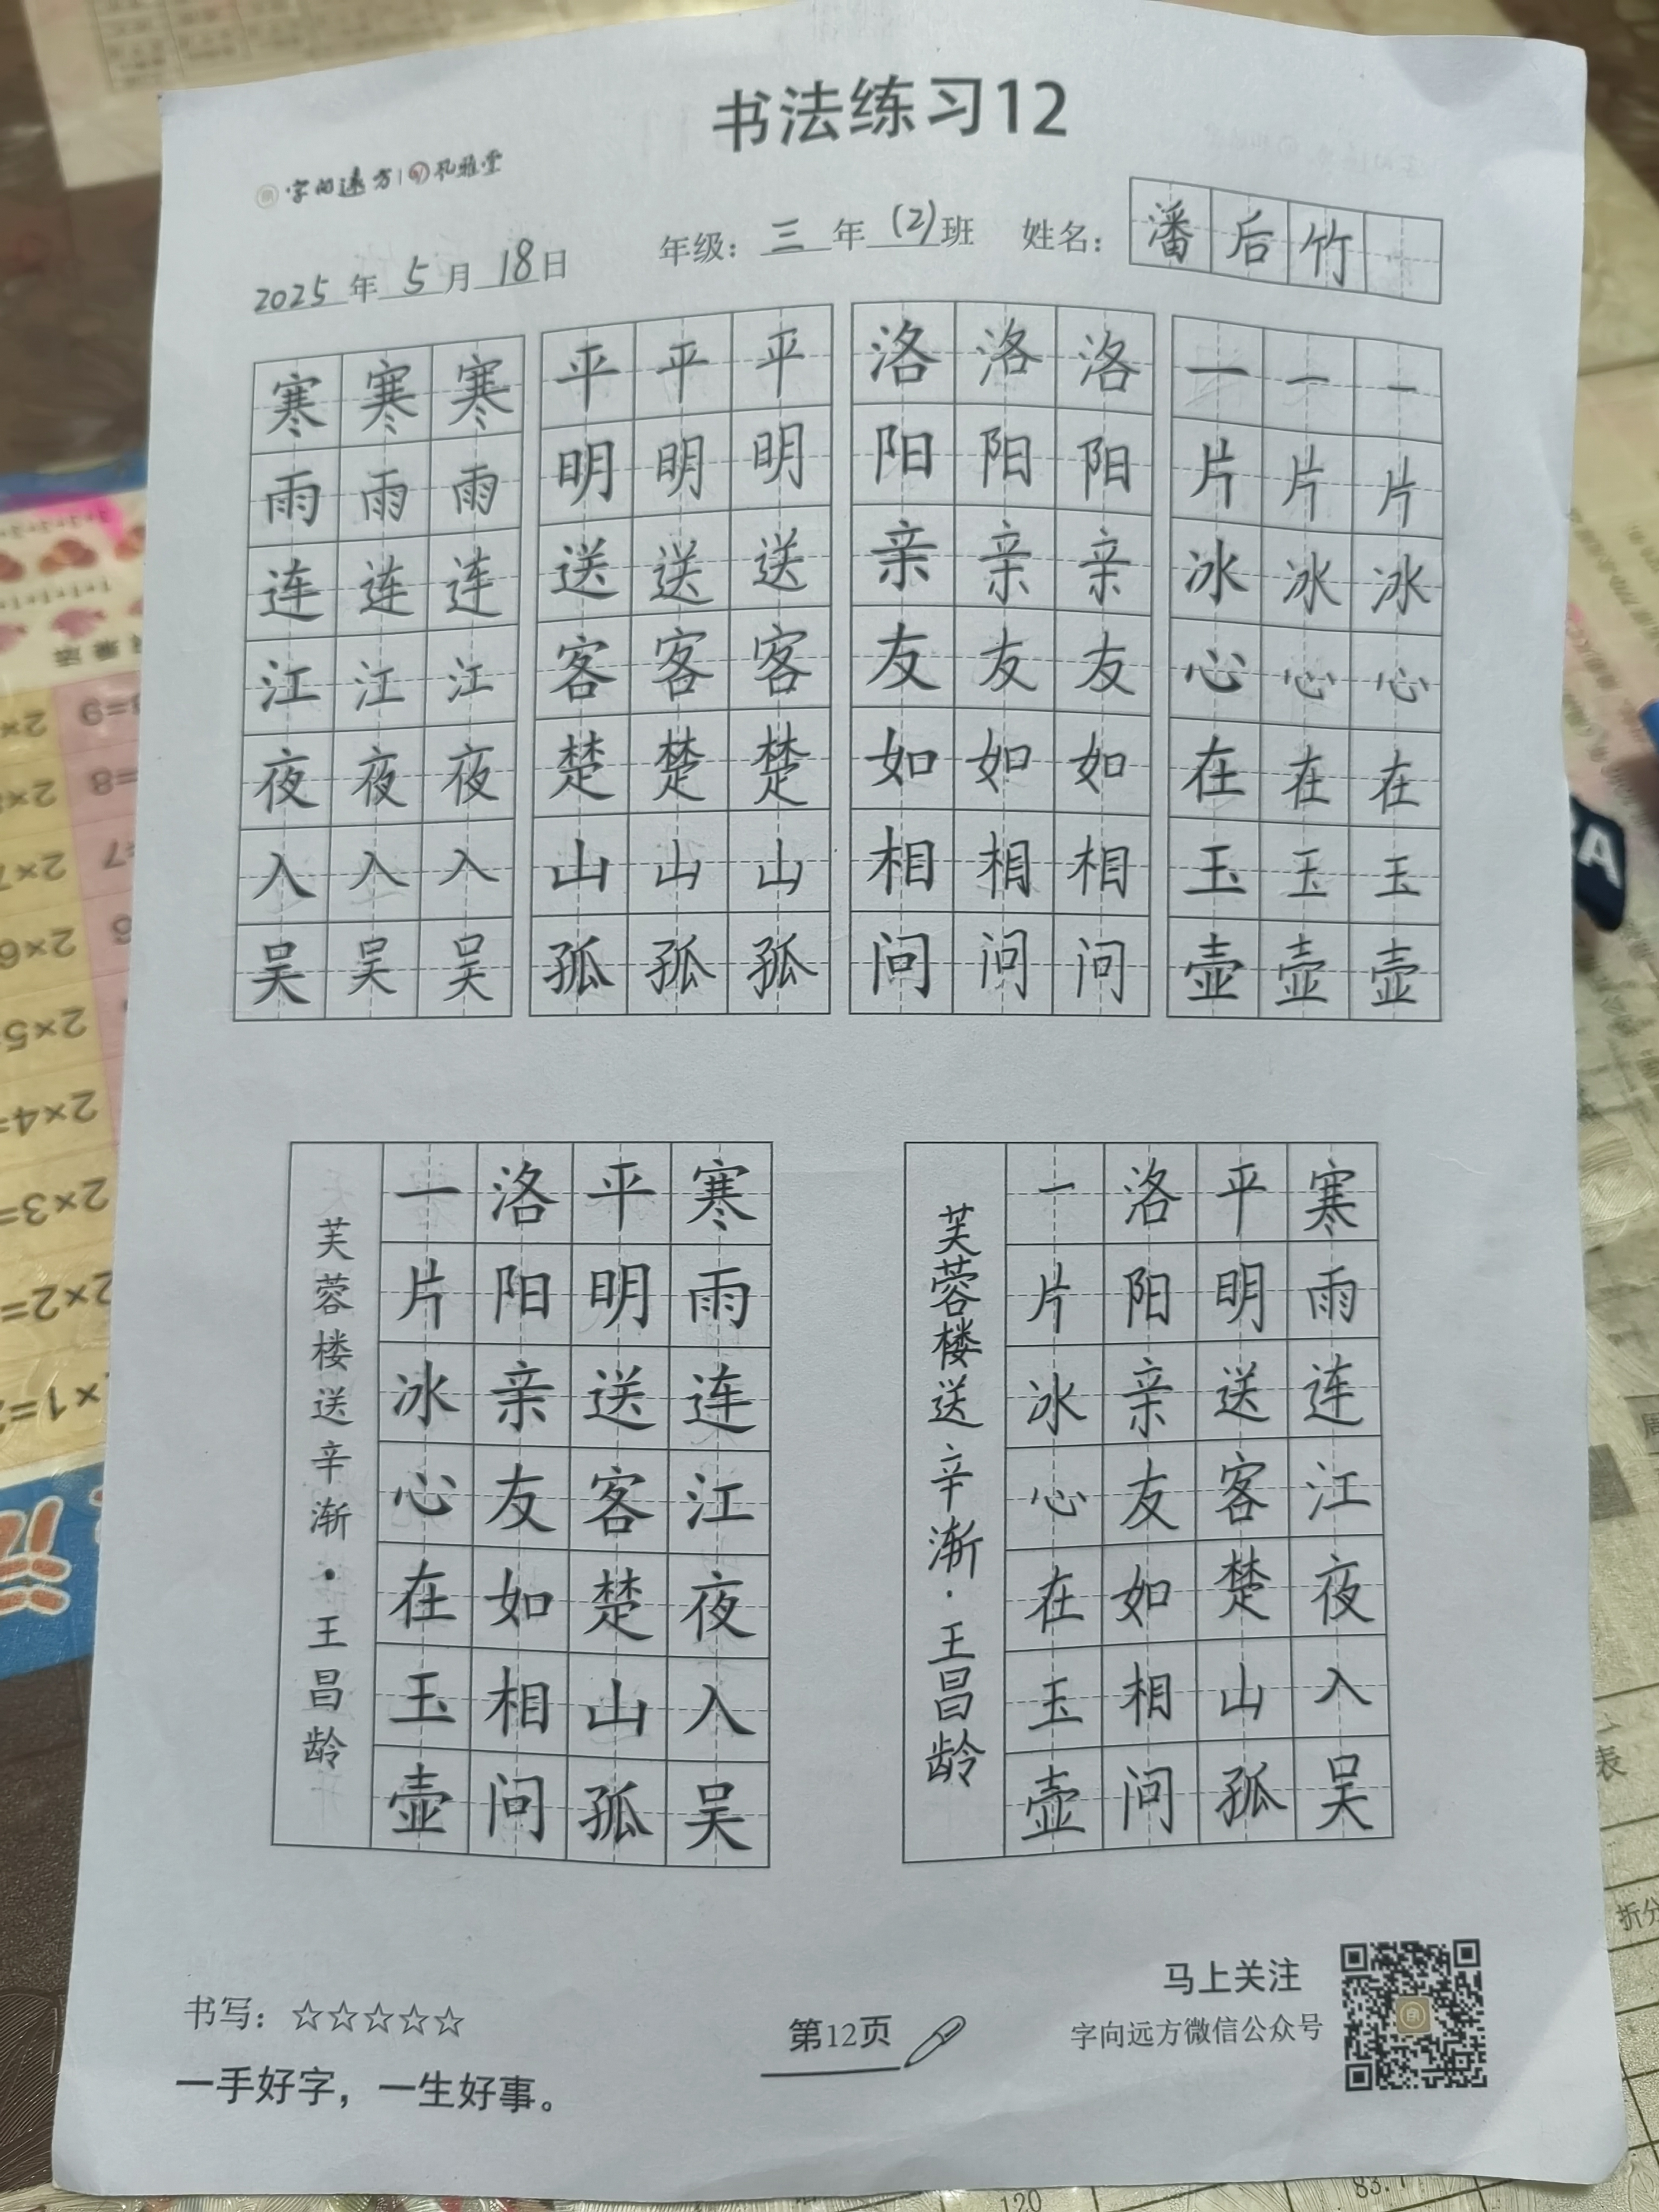 书法练习12
字向远方 孔雅堂
2025年5月18日 年级：三年(2)班 姓名：潘后竹
寒寒寒 平平平 洛洛洛 一一一
雨雨雨 明明明 阳阳阳 片片片
连连连 送送送 亲亲亲 冰冰冰
江江江 客客客 友友友 心心心
夜夜夜 楚楚楚 如如如 在在在
入入入 山山山 相相相 玉玉玉
吴吴吴 孤孤孤 问问问 壶壶壶
寒雨连江夜入吴
平明送客楚山孤
洛阳亲友如相问
一片冰心在玉壶
芙蓉楼送辛渐·王昌龄
寒雨连江夜入吴
平明送客楚山孤
洛阳亲友如相问
一片冰心在玉壶
芙蓉楼送辛渐·王昌龄
书写：☆☆☆☆☆
一手好字，一生好事。
第12页
马上关注
字向远方微信公众号
2×1=
2×2=
2×3=
2×4=
2×5
2×6
2×7
120
83.1
折分
表